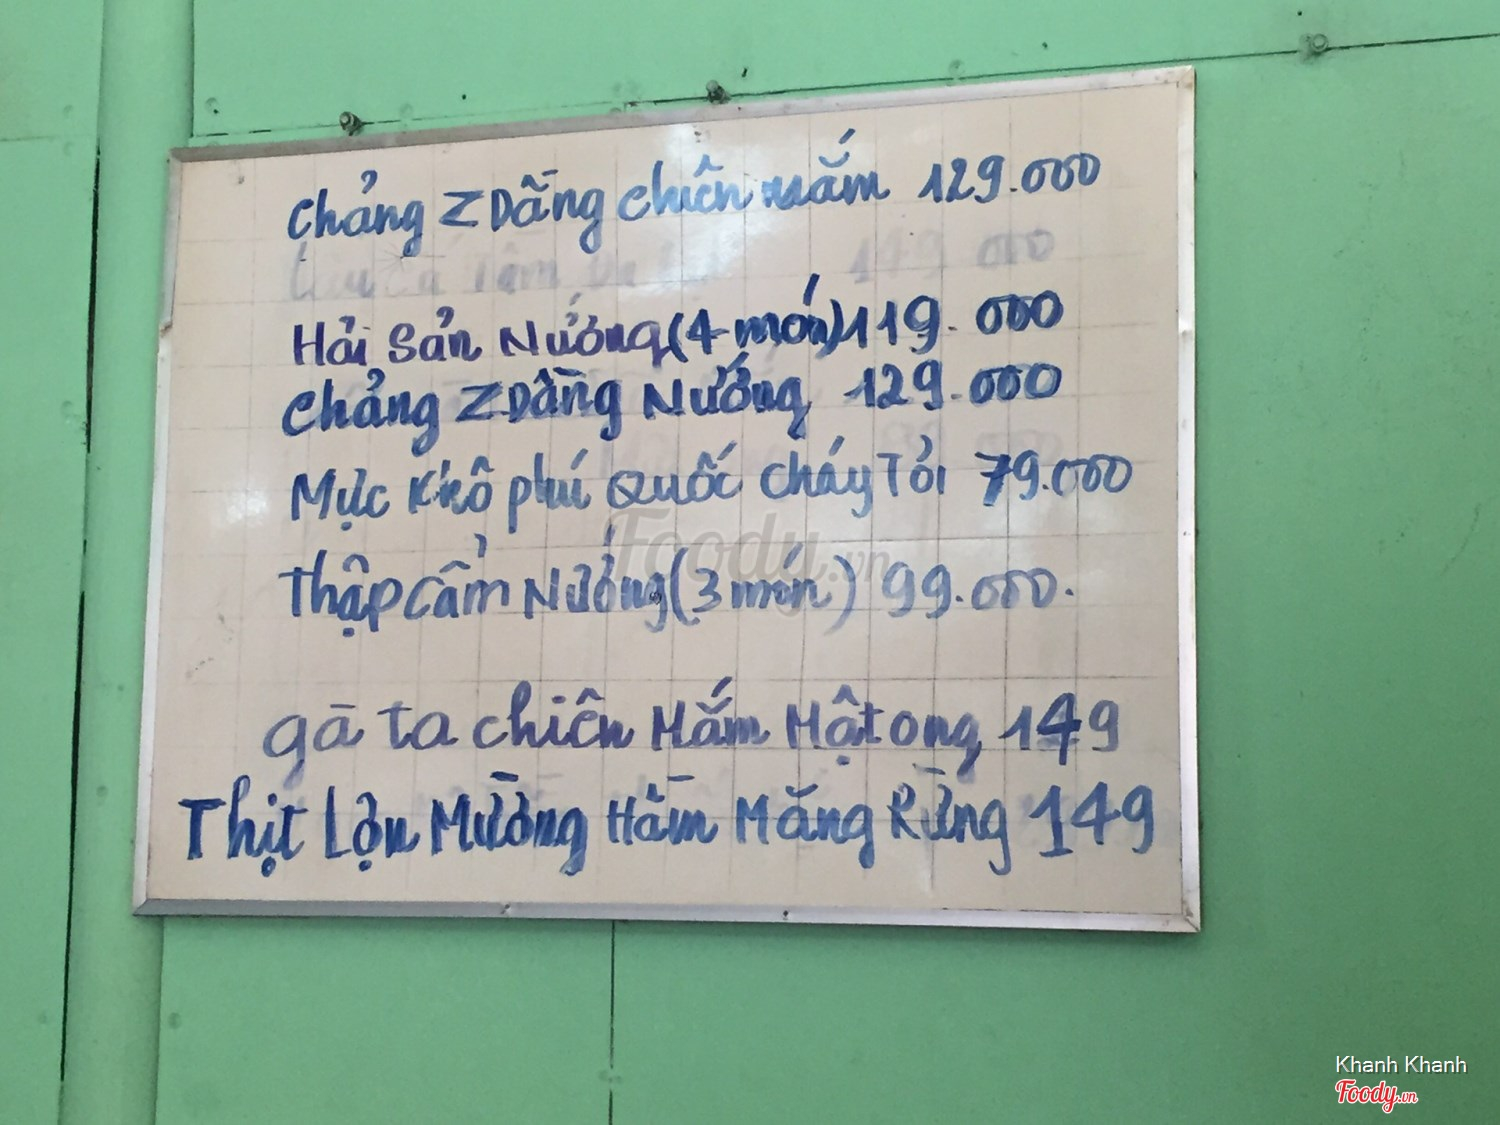 Chảng Z Dẫng chiên mắm 129.000
149 000
Hải Sản Nướng (4 món) 119.000
Chảng Z Dầng Nướng 129.000
Mực Khô phú Quốc cháy Tỏi 79.000
Thập cẩm Nướng (3 món) 99.000.
Foody.vn
gà ta chiên Mắm Mật ong 149
Thịt Lợn Mường Hầm Măng Rừng 149
Khanh Khanh
Foody.vn